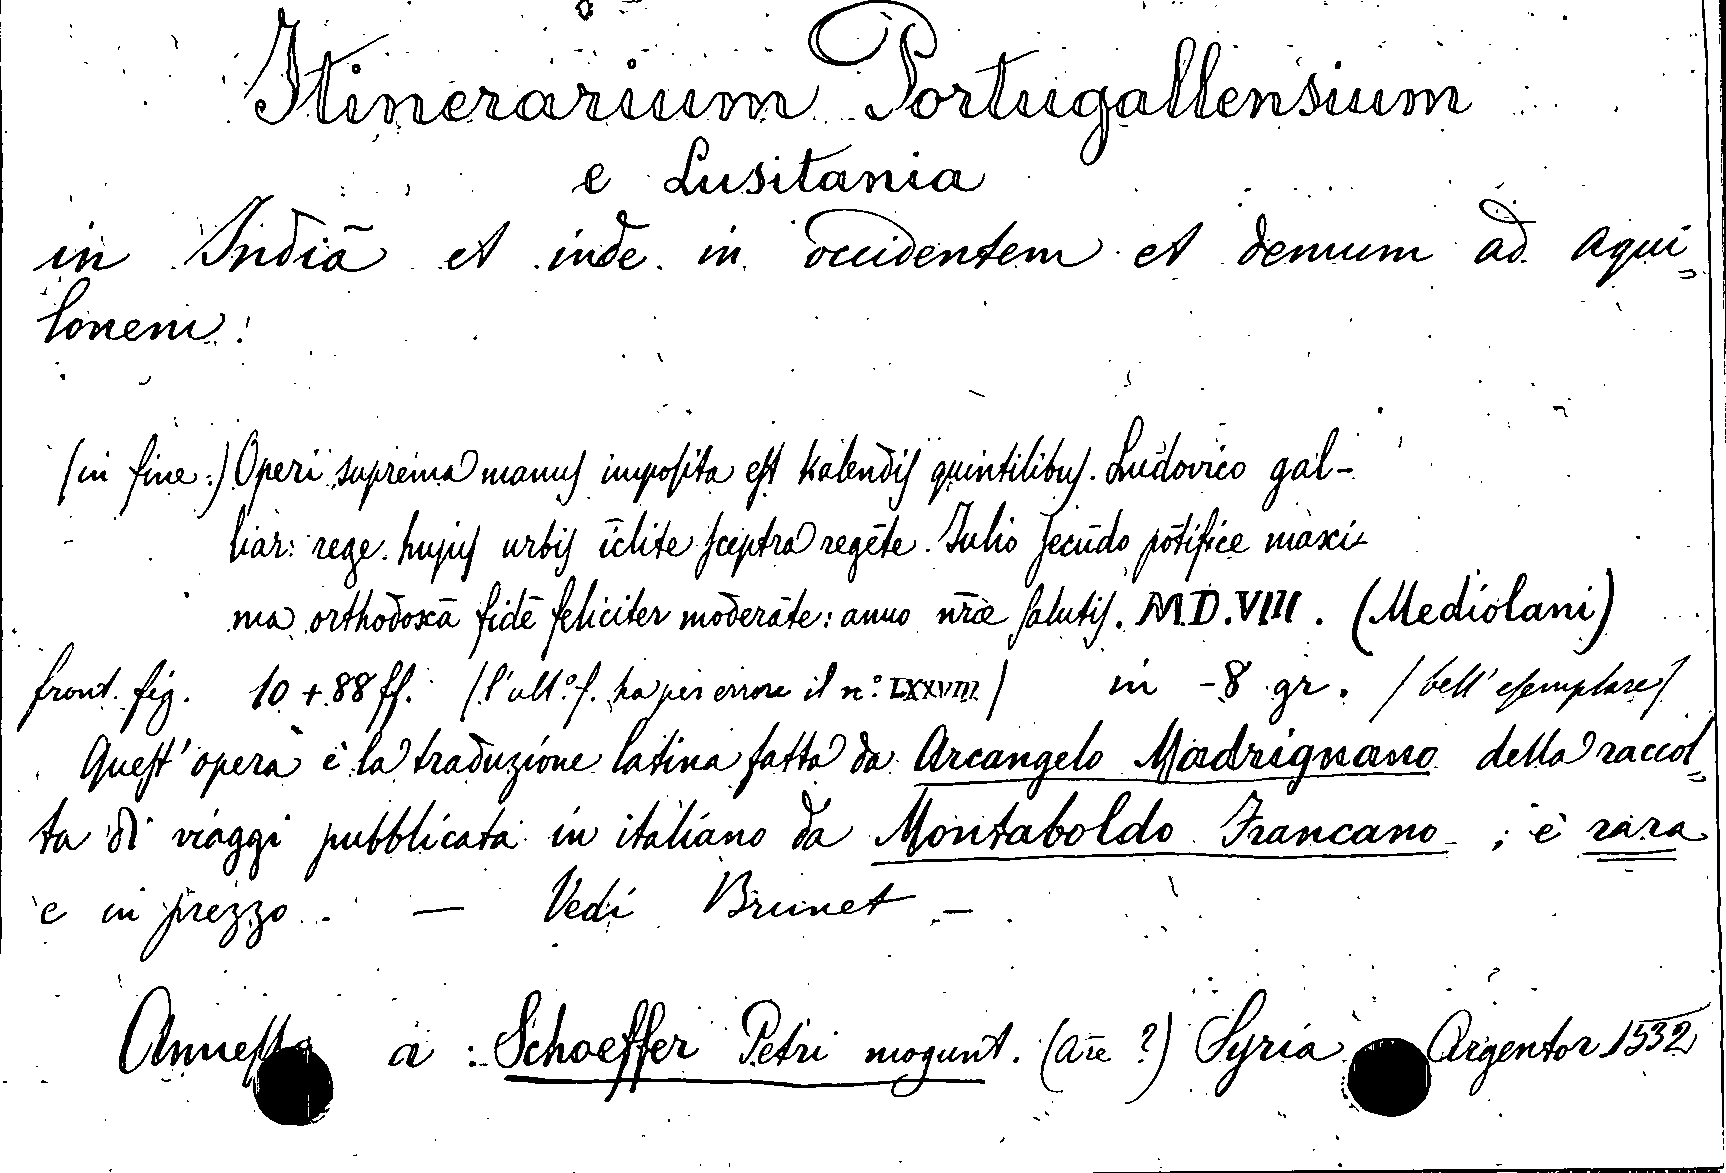 Itinerarium Portugallensium
e Lusitania
in Indiā et inde in occidentem et demum ad aqui„
lonem:
(in fine:) Operi suprema manus imposita est kalendis quintilibus. Ludovico gal-
liar: rege hujus urbis īclite sceptra regēte. Julio secūdo pōtifice maxi-
ma orthodoxā fidē feliciter moderāte: anno nr̄œ salutis. M.D.VIII. (Mediolani)
front. fig. 10 + 88 ff. (l'ult.º f. ha per errore il n.º LXXVIII) in -8 gr. (bell' esemplare)
Quest' opera è la traduzione latina fatta da Arcangelo Madrignano della raccol„
ta di viaggi pubblicata in italiano da Montaboldo Francano ; è rara
e in prezzo. — Vedi Brunet —
Annessa a : Schoeffer Petri mogunt. (are ?) Syria Argentor 1532